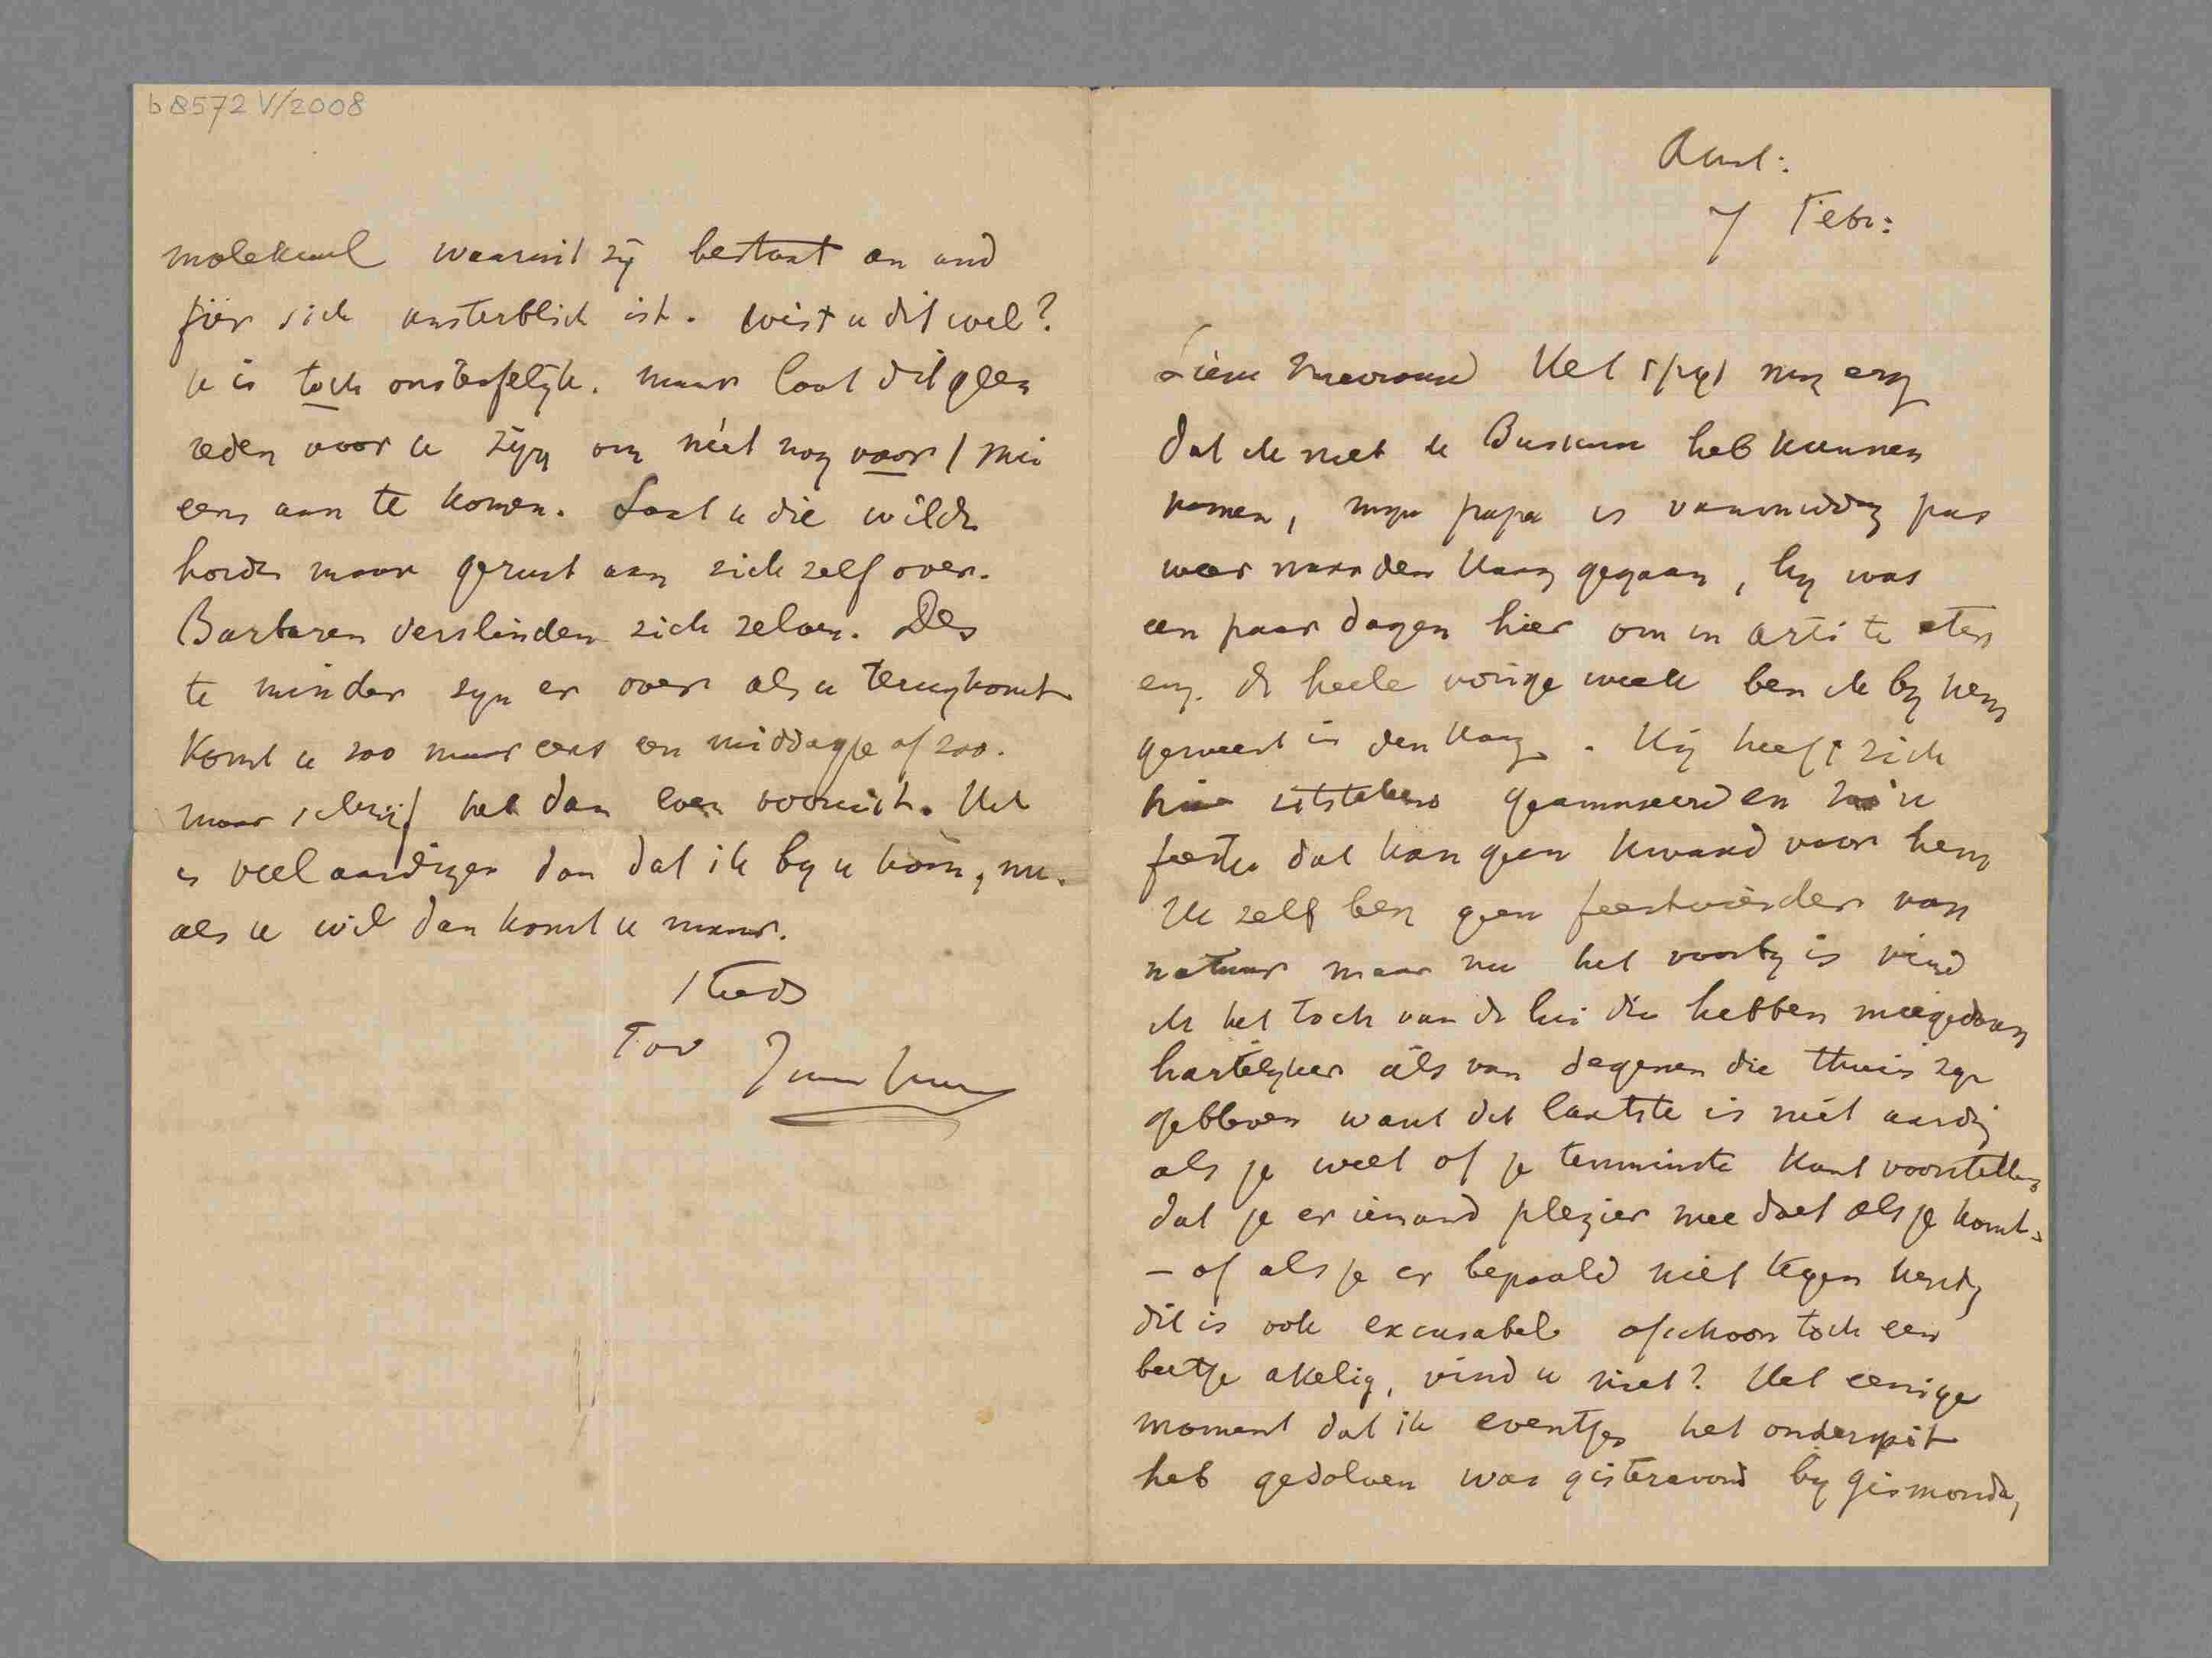 b 8572 V/2008
molekuul waaruit zij bestaat an und
für sich unsterblich ist. Wist u dit wel?
U is toch onsterfelijk. maar laat dit geen
reden voor u zijn om niet nog voor 1 Mei
eens aan te komen. Laat u die wilde
horde maar gerust aan zich zelf over.
Barbaren verslinden zich zelven. Des
te minder zyn er over als u terugkomt
Komt u zoo maar eens een middagje of zoo.
maar schrijf het dan even vooruit. Het
is veel aardiger dan dat ik by u kom, nu.
als u wil dan komt u maar.
Steeds
Tov
Amst:
7 Febr:
Lieve Mevrouw Het spyt my erg
dat ik niet te Bussum heb kunnen
komen, myn papa is vanmiddag pas
weer naar den Haag gegaan, hy was
een paar dagen hier om in Arti te eten
en. de heele vorige week ben ik by hem
geweest in den Haag. Hij heeft zich
hier uitstekend geamuseerd en zoo'n
feestje dat kan geen kwaad voor hem
Ik zelf ben geen feestvierder van
natuur maar nu het voorby is vind
ik het toch van de lui die hebben meegedaan
hartelyker als van degenen die thuis zyn
gebleven want dit laatste is niet aardig
als je weet of je tenminste kunt voorstellen
dat je er iemand plezier mee doet als je komt.
– of als je er bepaald niet tegen
dit is ook excusabel ofschoon toch een
beetje akelig, vind u niet? Het eenige
moment dat ik eventjes het onderspit
heb gedolven was gisteravond by Gismonda,